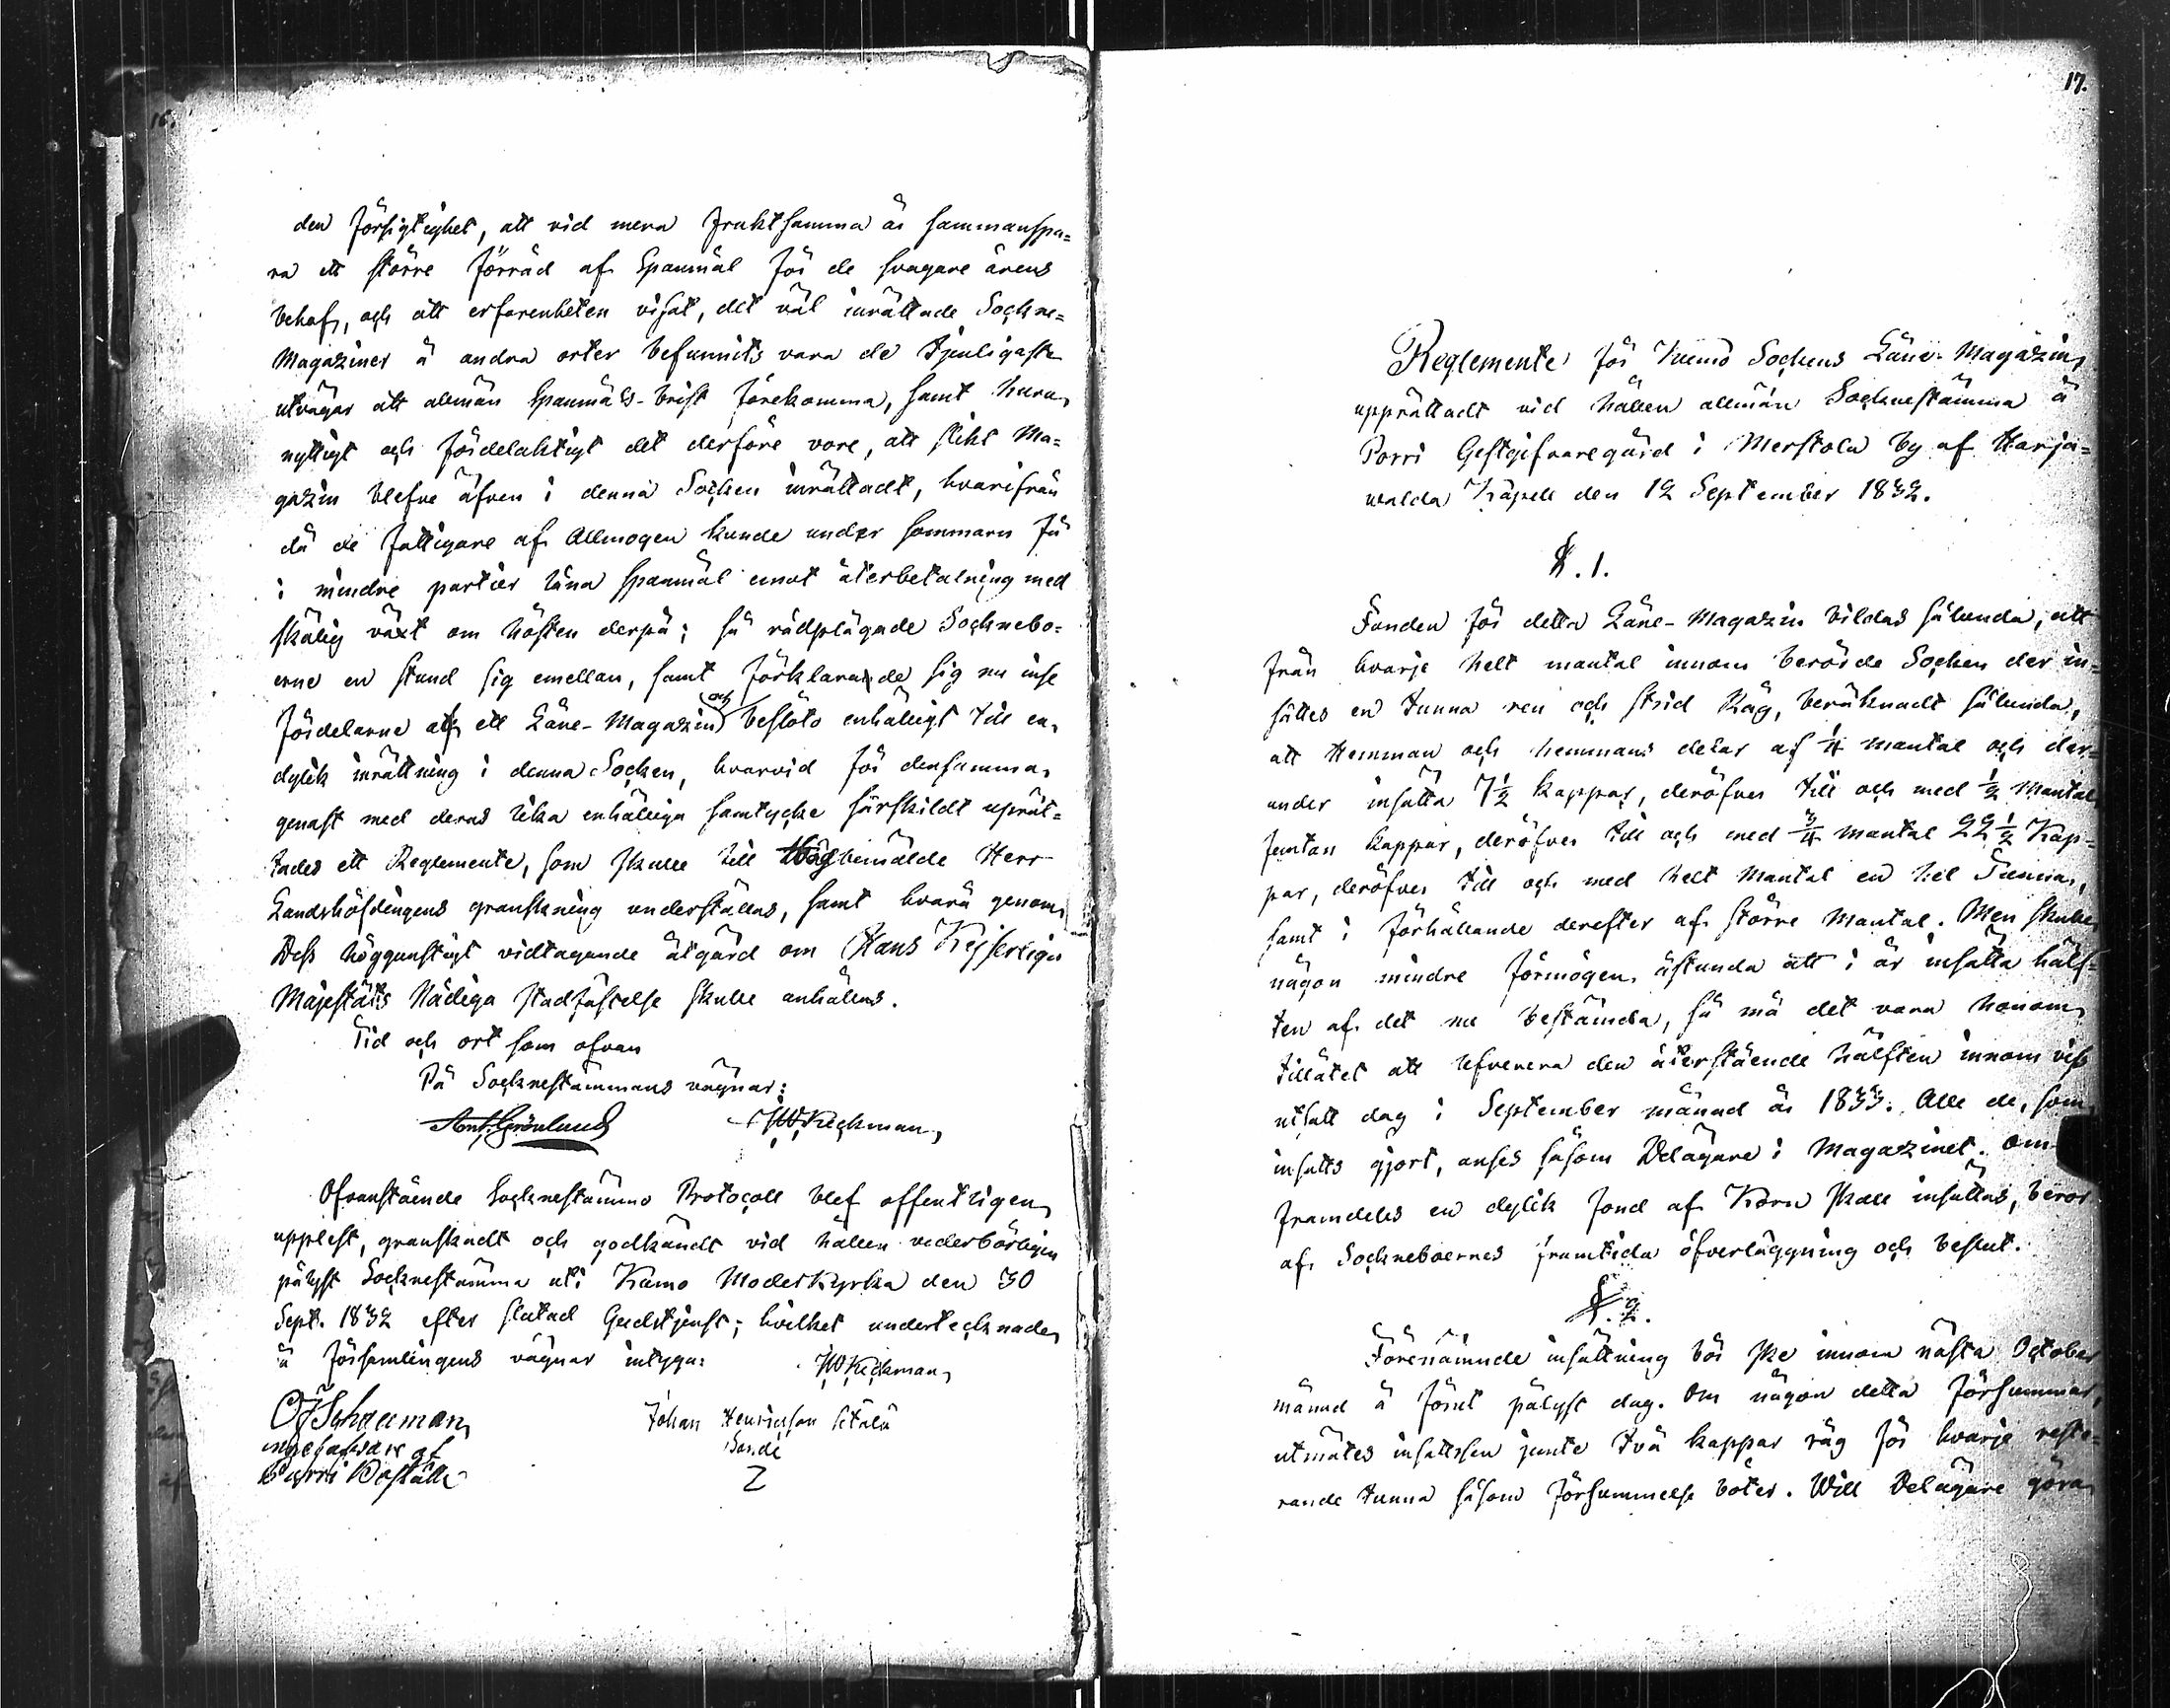 16.
den försigtighet, att vid mera fruktsamma år sammanspa=
ra ett större förråd af Spanmål för de svagare årens
behof, och att erfarenheten visat, det väl inrättade Sockne=
Magaziner å andra orter befunnits vara de tjenligaste
utvägar att allmän Spanmåls-brist förekomma, samt huru
nyttigt och fördelaktigt det derföre vore, att slikt Ma=
gazin blefve äfven i denna Socken inrättadt, hvarifrån
då de fattigare af Allmogen kunde under sommarn få
i mindre partier låna spanmål emot återbetalning med
skälig växt om hösten derpå; så rådplägade Socknebo=
erne en stund sig emellan, samt förklarade sig nu inse
fördelarne af ett Låne-Magazin och beslöto enhälligt till en
dylik inrättning i denna Socken, hvarvid för densamma
genast med deras lika enhälliga samtycke särskildt uprät=
tades ett Reglemente, som skulle till Högbemälde Herr
Landshöfdingens granskning underställas, samt hvarå genom
Dess höggunstigt vidtagande åtgärd om Hans Kejserliga
Majestäts Nådiga stadfästelse skulle anhållas.
Tid och ort som ofvan
På Socknestämmans vägnar:
Ant. Grönlund JW Keckman
Ofvanstående Socknestämmo Protocoll blef offentligen
upplest, granskadt och godkändt vid hållen vederbörligen
pålyst Socknestämma uti Kumo Moderkyrka den 30
Sept. 1832 efter slutad Gudstjenst; hvilket undertecknade
å församlingens vägnar intyga: JW Keckman
OJ Schauman Johan Henricsson
innehafvare af Bonde
Purri Boställe
17.
Reglemente för Kumo Sockens Låne-Magazin
upprättadt vid hållen allmän Socknestämma å
Porri Gestgifvaregård i Merstola by af Harja=
walda Kapell den 12 September 1832.
§. 1.
Fonden för detta Låne-Magazin bildas sålunda, att
från hvarje helt mantal innom berörde Socken der in=
sättes en tunna ren och strid Råg, beräknadt sålunda,
att Hemman och hemmans delar af 1/4 mantal och der=
under insätta 7 1/2 kappar, deröfver till och med 1/2 Mantal
femton kappar, deröfver till och med 3/4 mantal 22 1/2 Kap=
par, deröfver till och med helt Mantal en hel Tunna,
samt i förhållande derefter af större Mantal. Men skulle
någon mindre förmögen åstunda att i år insätta hälf=
ten af det nu bestämda, så må det vara honom
tillåtet att lefverera den återstående hälften innom viss
utsatt dag i September månad år 1833. Alle de, som
insatts gjort, anses såsom Delägare i Magazinet. Om
framdeles en dylik fond af Korn skall insättas, beror
af Sockneboernes framtida öfverläggning och beslut.
§. 2.
Förenämnde insättning bör ske innom nästa October
månad å förut pålyst dag. Om någon detta försummar,
utmätes insattsen jemte två kappar råg för hvarje reste=
rande tunna såsom försummelse böter. Will Delägare göra